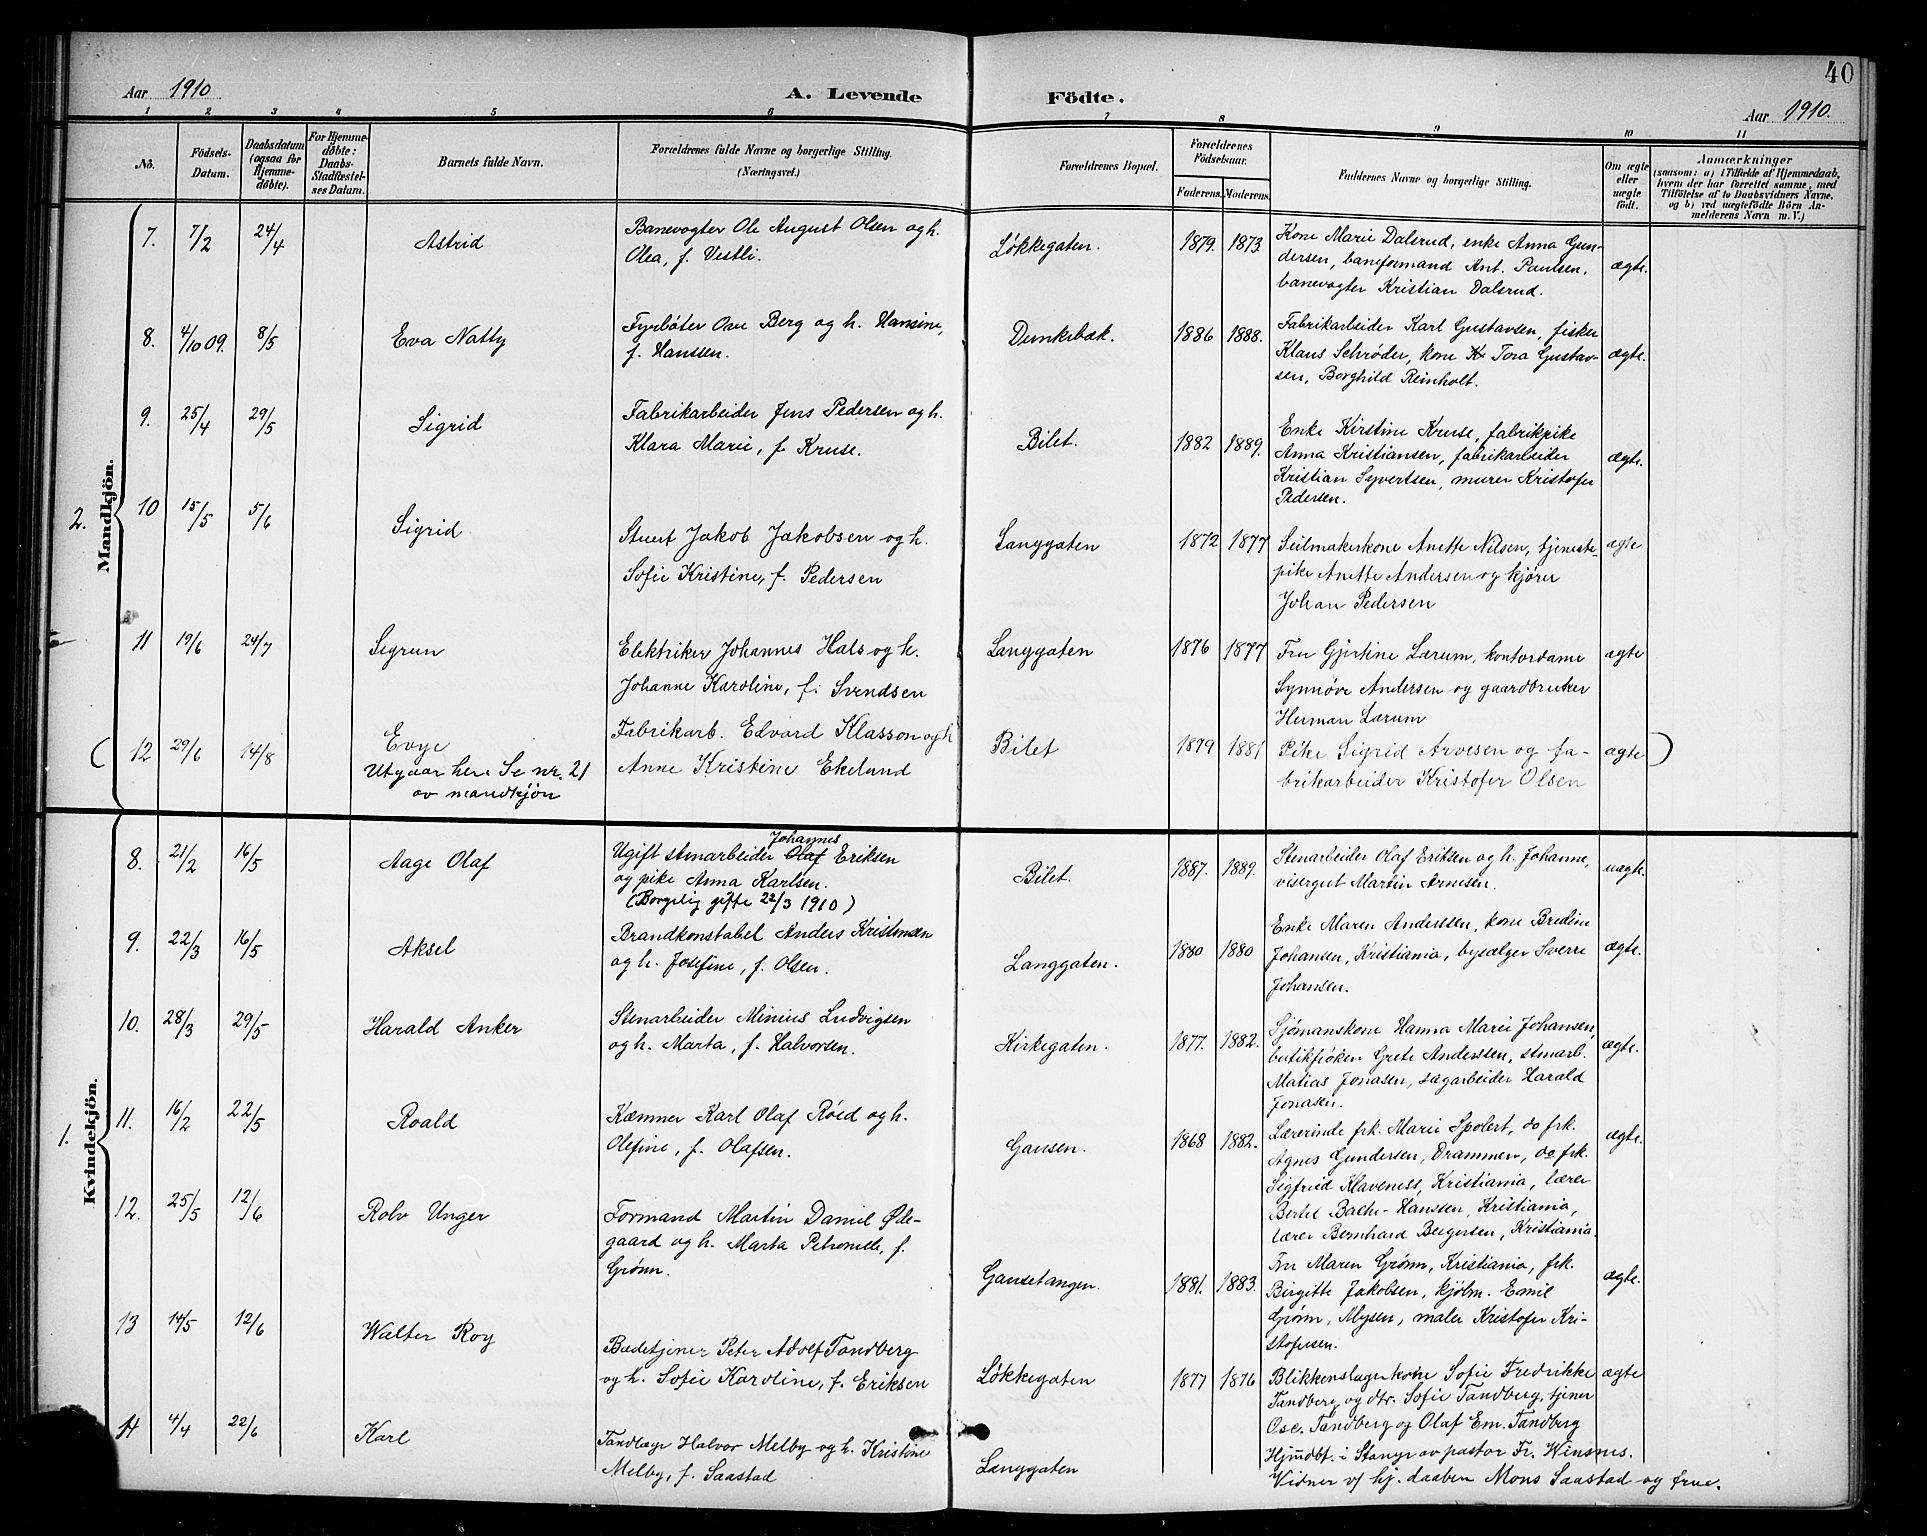 40
Aar 1910
A. Levende Födte.
Aar 1910.
1 2 3 4 5 6 7 8 9 10 11
No.
Födsels-
Datum.
Daabsdatum
(ogsaa for
Hjemme-
döbte).
For Hjemme-
döbte:
Daabs-
Stadfæstel-
ses Datum.
Barnets fulde Navn.
Forældrenes fulde Navne og borgerlige Stilling.
(Næringsvei.)
Forældrenes Bopæl.
Forældrenes
Födselsaar.
Faderens. Moderens.
Faddernes Navne og borgerlige Stilling.
Om ægte
eller
uægte
födt.
Anmærkninger
(saasom: a) i Tilfælde af Hjemmedaab,
hvem der har forrettet samme, med
Tilföielse af to Daabsvidners Navne,
og b) ved uægtefödte Börn An-
melderens Navn m. V.)
2. Mandkjön.
7. 7/2 24/4 Astrid
Banevogter Ole August Olsen og h.
Olea, f. Vestli.
Løkkegaten. 1879. 1873
Kone Marie Dalsrud, enke Anna Gun-
dersen, baneformand Ant. Paulsen,
banevogter Kristian Dalsrud.
ægte.
8. 4/10 09. 8/5 Eva Natty
Fyrbøter Ove Berg og h. Hansine,
f. Hanssen.
Dunkebæk. 1886 1888.
Fabrikarbeider Karl Gustavsen, fisker
Klaus Schrøder, kone Tora Gustav-
sen, Borghild Reinholt.
ægte.
9. 25/4 29/5 Sigrid
Fabrikarbeider Jens Pedersen og h.
Klara Marie, f. Kruse.
Bilet. 1882 1889.
Enke Kirstine Kruse, fabrikpike
Anna Kristiansen, fabrikarbeider
Kristian Syvertsen, murer Kristofer
Pedersen.
ægte.
10 15/5 5/6 Sigrid
Stuert Jakob Jakobsen og h.
Sofie Kristine, f. Pedersen
Langgaten 1872 1877
Seilmakerkone Anette Nilsen, tjeneste-
pike Anette Andersen og kjører
Johan Pedersen
ægte
11 19/6 24/7 Sigrun
Elektriker Johannes Hals og h.
Johanne Karoline, f. Svendsen
Langgaten 1876 1877
Fru Gjertine Lærum, kontordame
Synnøve Andersen og gaardbruker
Herman Lærum
ægte
( 12 29/6 14/8 Evye
Utgaar her. Se nr. 21
av mandkjøn
Fabrikarb. Edvard Klasson og h
Anne Kristine Ekelund
Bilet 1879 1881
Pike Sigrid Arvesen og fa-
brikarbeider Kristofer Olsen
ægte )
1. Kvindekjön.
8. 21/2 16/5 Aage Olaf
Johannes
Ugift stenarbeider Olaf Eriksen
og pike Anna Karlsen.
(Borgelig gifte 22/3 1910)
Bilet. 1887. 1889.
Stenarbeider Olaf Eriksen og h. Johanne,
visergut Martin Arnesen.
uægte.
9. 22/3 16/5 Aksel
Brandkonstabel Anders Kristensen
og h. Josefine, f. Olsen.
Langgaten. 1880 1880
Enke Maren Anderssen, kone Bredine
Johansen, Kristiania, bysælger Sverre
Johansen.
ægte.
10. 28/3 29/5 Harald Anker
Stenarbeider Minius Ludvigsen
og h. Marta, f. Halvorsen.
Kirkegaten. 1877. 1882.
Sjømanskone Hanna Marie Johansen,
butikfrøken Grete Anderssen, stenarb.
Matias Jonasen, sagarbeider Harald
Jonasen.
ægte.
11. 16/2 22/5 Roald
Kæmner Karl Olaf Røed og h.
Olefine, f. Olafsen.
Gausen. 1868 1882.
Lærerinde frk. Marie Spolert, do frk.
Agnes Gundersen, Drammen, do frk.
Sigfried Klaveness, Kristiania, lærer
Bertel Bache-Hanssen, Kristiania,
lærer Bernhard Bergersen, Kristiania.
ægte.
12. 25/5 12/6 Rolv Unger
Formand Martin Daniel Øde-
gaard og h. Marta Petronelle, f.
Grønn.
Gausetangen. 1881. 1883.
Fru Maren Grønn, Kristiania, frk.
Birgitte Jakobsen, kjøbm. Emil
Grønn, Mysen, maler Kristofer Kri-
stofersen.
ægte.
13 14/5 12/6 Walter Roy
Budetjener Peter Adolf Tandberg
og h. Sofie Karoline, f. Eriksen
Løkkegaten 1877 1876
Blikkenslagerkone Sofie Fredrikke
Tandberg og dtr. Sofie Tandberg, tjener
Osc. Tandberg og Olaf Em. Tandberg
ægte
14 4/4 22/6 Karl
Tandlæge Halvor Melby og h. Kristine
Melby, f. Saastad
Langgaten
Hjmdbt. i Stange av pastor Fr. Winsnes.
Vidner v/ hj. daaben Mons Saastad og frue.